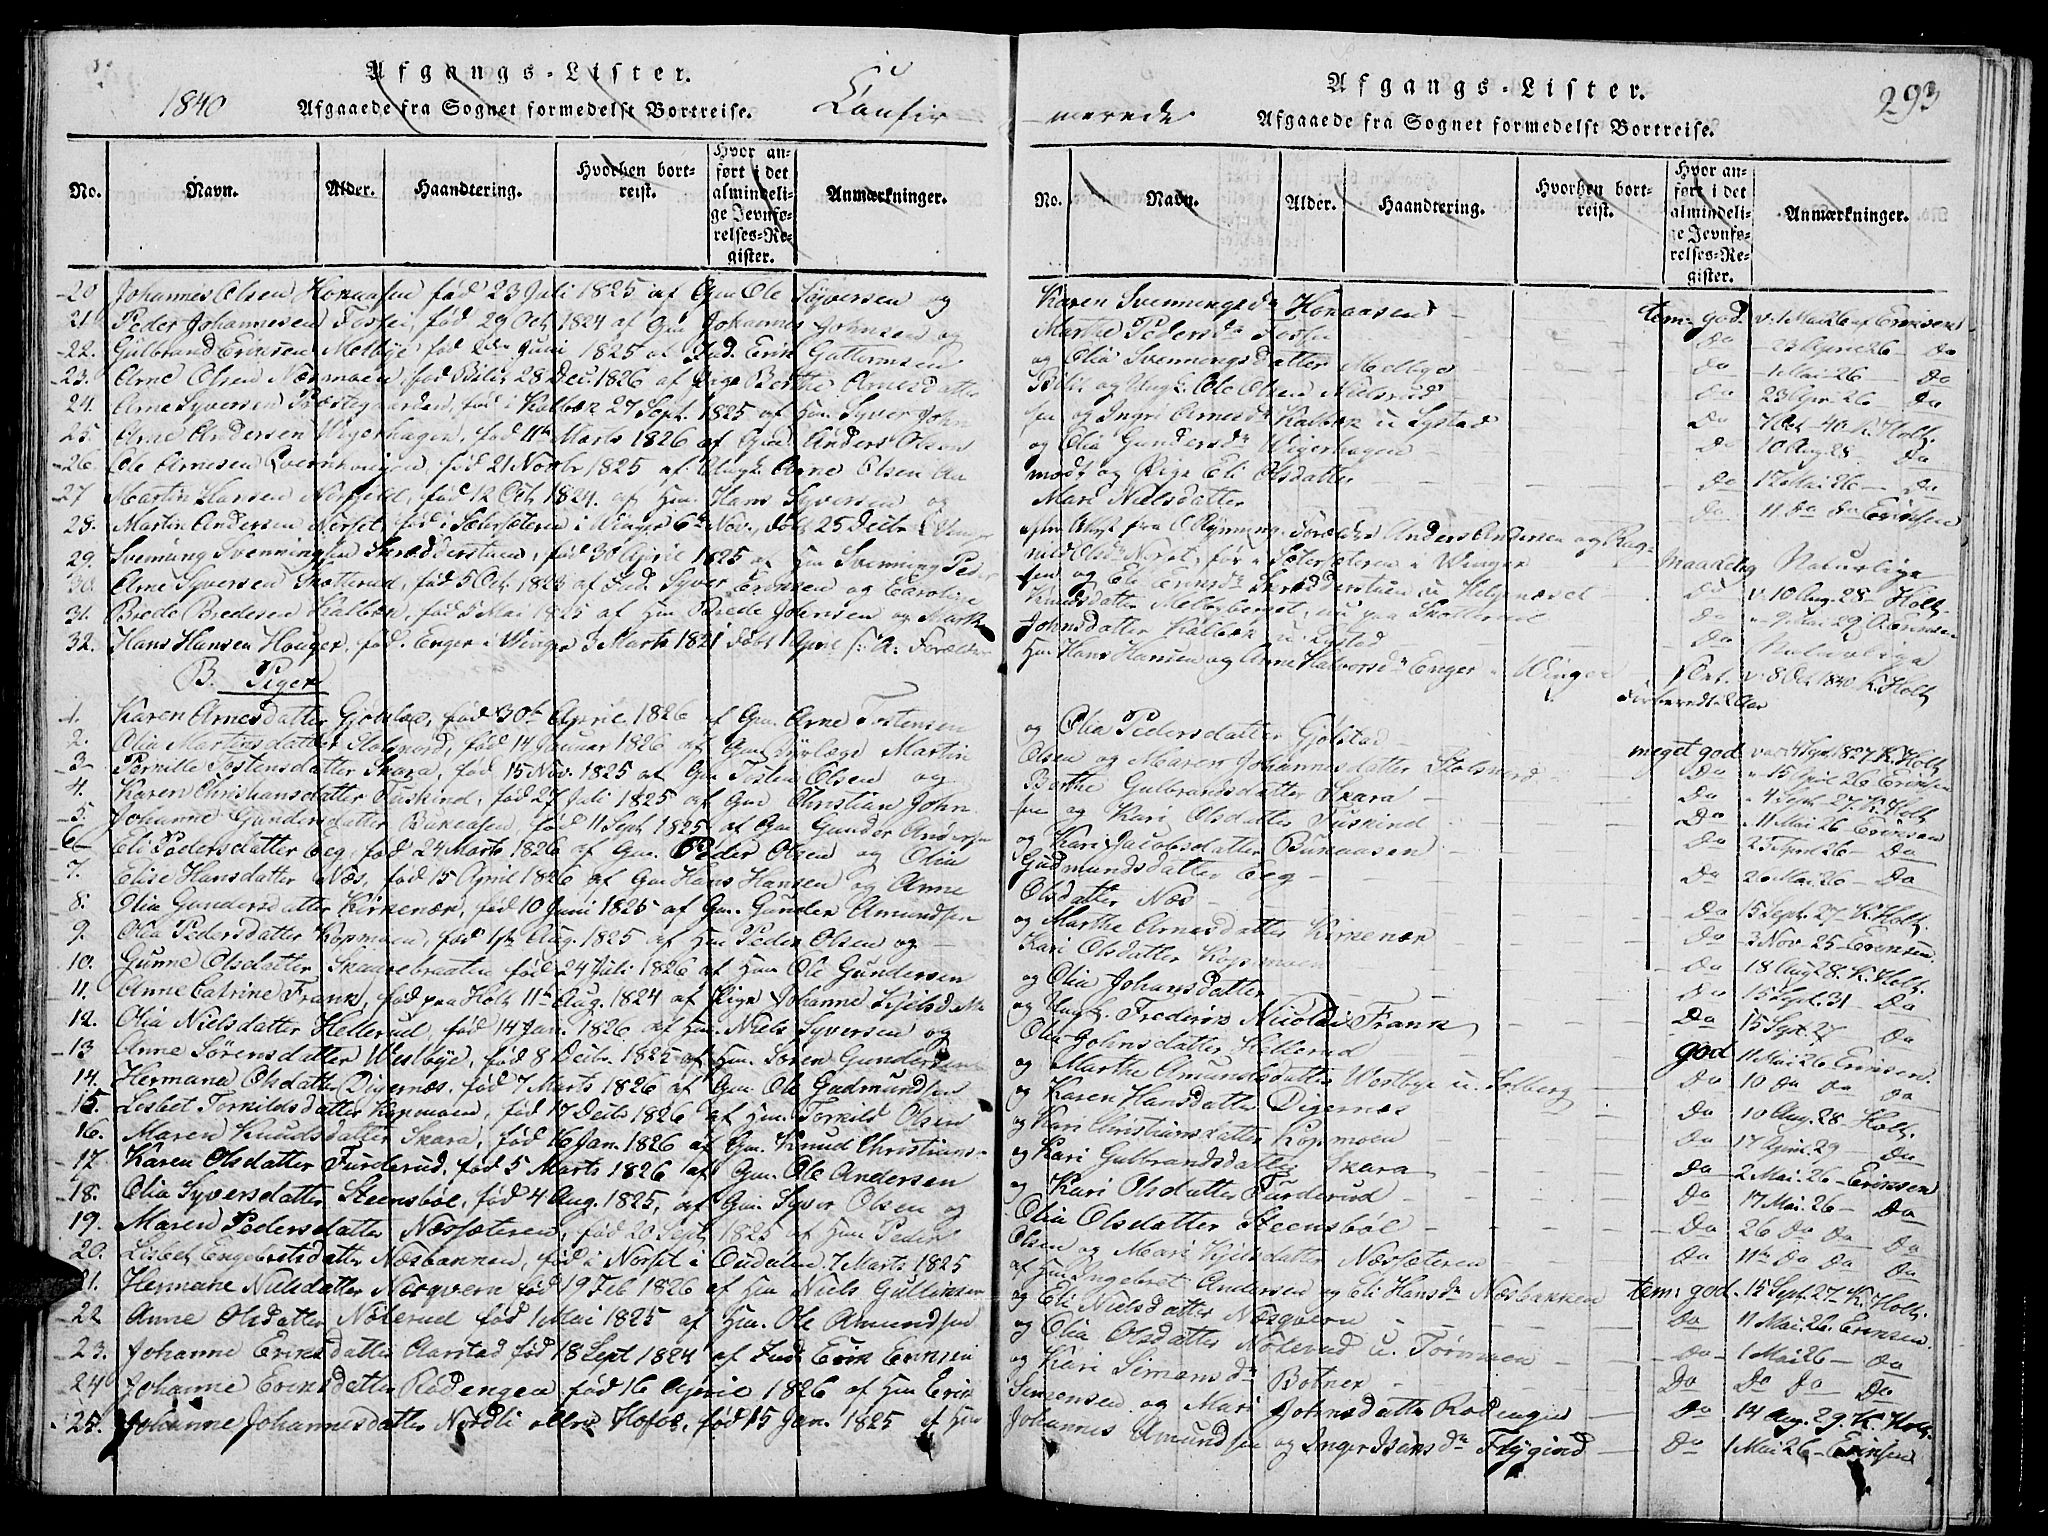 Afgangs-Lister.
1840
Afgaaede fra Sognet formedelst Bortreise.
Confir
No.
Navn.
Alder.
Haandtering.
Hvorhen bort-
reist.
Hvor an-
ført i det
almindeli-
ge Jevnfø-
relses-Re-
gister.
Anmærkninger.
20 Johannes Olsen Honaasen fød 23 Juli 1825 af Gm Ole Syversen og
21. Peder Johannesen Fosse, fød 29 Oct 1824 af Gm Johannes Johnsen og
22. Gulbrand Eriksen Melbye fød Juni 1825 af Ind. Erik Guttormsen
23. Arne Olsen Næsmoen, fød 28 Dec. 1826 af Pige Berthe Arnesdatter
24. Arne Syversen Præstegaarden, fød i Kalbæk 27 Sept. 1825 af Hm. Syver John
25. Arne Andersen Wigerhagen, fød 11te Marts 1826 af Gm Anders Olsen
26. Ole Arnesen fød 21 Novbr 1825 af Ungk. Arne Olsen Aa
27 Martin Hansen fød 12 Oct 1824 af Hm. Hans Syversen og
28. Martin Andersen Norset, fød i Sætersæteren i Winger 6te Nov., døbt 25 Decbr
29. Svenning Svenningsen Skrædderstuen, fød 30 April 1825 af Hm Svenning Peder
30. Arne Syversen Skotterud, fød 5 Oct 1823 af Ind Syver Eriksen og Caroline
31. Brede Bredesen Kalbæk, fød Mai 1825 af Hm Brede Johnsen og Marthe
32. Hans Hansen Houger, fød Enger i Winger 3 Marts 1821 døbt 1 April S: A: Forældre
B. Piger
1. Karen Arnesdatter fød 30te April 1826 af Gm. Arne Tostensen
2. Olia Martinsdatter Stolsnord, fød 14 Januar 1826 af Gm Martin
3 Pernille Tostensdatter Skara, fød 15 Nov. 1825 af Gm Tosten Olsen og
4. Karen Christiansdatter Tuskind, fød 27 Juli 1825 af Gm Christian John
5. Johanne Gundersdatter Bunaasen fød 11 Sept 1825 af Gm Gunder Andersen
6 Eli Pedersdatter Eeg, fød 24 Marts 1826 af Gm. Peder Olsen og Olia
7. Elise Hansdatter Næs, fød 15 April 1826 af Gm Hans Hansen og Anne
8. Olia Gundersdatter Kirkenær, fød 10 Juni 1825 af Gm. Gunder Amundsen
9. Olia Pedersdatter Kopmoen, fød 1ste Aug. 1825 af Hm Peder Olsen og
10. Gunne Olsdatter Skaarebraaten fød 24 Juli 1826 af Hm Ole Gundersen
11. Anne Catrine Frank, fød paa Holt 11te Aug. 1824 af Pige Johanne Kjelsdatter
12. Olia Nielsdatter Hellerud, fød 14 Jan. 1826 af Hm. Niels Syversen og
13 Anne Sørensdatter Westbye, fød 8 Decbr. 1825 af Hm. Søren Gundersen
14. Hermana Olsdatter Digernæs, fød 7 Marts 1826 af Gm. Ole Gudmundsen
15. Lisbet Torkildsdatter Kopmoen, fød 17 Decbr 1826 af Hm. Torkild Olsen
16. Maren Knudsdatter Skara, fød 16 Jan. 1826 af Gm. Knud Christians-
17 Karen Olsdatter Furderud, fød 5 Marts 1826 af Gm. Ole Andersen
18. Olia Syversdatter Steensbøl, fød 4 Aug. 1825, af Gm. Syver Olsen og
19. Maren Pedersdatter Næssæteren, fød 20 Sept 1825 af Hm Peder
20. Lisbet Engebretsdatter Næsbakken, fød i Norset i Oudalen 7 Marts 1825
21. Hermane Nielsdatter Næsqvern fød 19 Feb 1826 af Hm Niels Gulliksen
22 Anne Olsdatter Nolerud fød 1 Mai 1825 af Hm. Ole Amundsen
23. Johanne Eriksdatter Aarstad fød 18 Sept 1824 af Ind Erik Eriksen
24 Johanne Eriksdatter Rødengen fød 16 April 1826 af Hm Erik
25. Johanne Johannesdatter Nordli eller Hofoe, fød 15 Jan. 1825 af Hm
Afgangs-Lister.
293
merede
Afgaaede fra Sognet formedelst Bortreise.
No.
Navn.
Alder.
Haandtering.
Hvorhen bort-
reist.
Hvor an-
ført i det
almindeli-
ge Jevnfø-
relses-Re-
gister.
Anmærkninger.
Karen Svenningsdr Honaasen tem: god v. 1 Mai 26 af Eriksen
Marthe Pedersdr Fosse Do 23 April 26 Do
og Olia Svenningsdatter Melbye Do 1 Mai 26 Do
og Ungk. Ole Olsen Nielsrud Do 23 Apr. 26 Do
sen og Ingri Arnesdr Kalbæk u. Lystad Do 7 Oct 40 K. Holt.
og Olia Gundersdr Wigerhagen Do 10 Aug. 28 Do
modt og Pige Eli Olsdatter Do 17 Mai 26 Do
Mari Nielsdatter Do 11 Do Do Eriksen
Forældre Anders Andersen og
Norset, før i Sætersæteren i Winger maadelig Naturlige
sen og Eli Eriksdr Skrædderstuen u. Helgenæset Do v. 10 Aug. 28 Holt.
Knudsdatter Melbyberget, nu paa Skotterud Do 9 Mai 29 Eriksen
Johnsdatter Kalbæk u. Lystad Do Naturlige
Hm Hans Hansen og Anne Halvorsdr Enger i Winger v. 8 Oct 1840 K. Holt
og Olia Pedersdatter Gjølstad
Olsen og Maren Johannesdatter Stolsnord meget god vac. 4 Sept 1827 K. Holt
Berthe Gulbrandsdatter Skara Do 15 April 26 Eriksen
sen og Kari Olsdatter Tuskind Do 4 Sept 27. K. Holt
og Kari Jacobsdatter Bunaasen Do 11 Mai 26 Eriksen
Gudmundsdatter Eeg Do 23 April 26 Do
Olsdatter Næs Do 20 Mai 26 Do
og Marthe Arnesdatter Kirkenær Do 15 Sept. 27 K. Holt.
Kari Olsdatter Kopmoen Do 3 Nov 25 Eriksen.
og Olia Johansdatter Do 18 Aug 28. K. Holt.
og Ungk. Frederik Nicolai Frank Do 15 Sept. 31 Do
Olia Johnsdatter Hellerud Do 15 Sept. 27 Do
og Marthe Amundsdatter Westbye u. Solberg god 11 Mai 26 Eriksen.
og Karen Hansdatter Digernæs Do 10 Do Do Do
og Kari Christiansdatter Kopmoen Do 10 Aug. 28 Holt.
og Kari Gulbrandsdatter Skara Do 17 April 29 Do
og Kari Olsdatter Furderud Do 2 Mai. 26 Eriksen
Olia Olsdatter Steensbøl Do 17 Mai. 26 Do
Olsen og Mari Kjelsdatter Næssæteren Do 26 Do Do Do
af Hm Ingebret Andersen og Eli Hansdr Næsbakken Do 11te Do Do Do
og Eli Nielsdatter Næsqvern tem: god 15 Sept 27 K. Holt.
og Olia Olsdatter Nolerud u. Tørmoen Do 11 Mai. 26. Eriksen
og Kari Simensdr Botner Do 1 Mai 26 Do
Simensen og Mari Johnsdatter Rødengen Do Do Do Do
Johannes Amundsen og Inger Isaksdr Flygind Do 14 Aug. 29 K. Holt.
Do 1 Mai 26 Eriksen